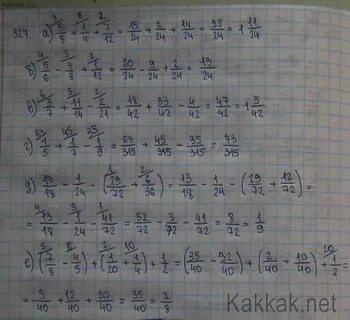 kakkak.net
327. а) 5/8 + 1/4 + 7/12 = 15/24 + 6/24 + 14/24 = 35/24 = 1 11/24
б) 5/6 - 3/8 + 1/12 = 20/24 - 9/24 + 2/24 = 13/24
в) 3/7 + 11/14 - 2/21 = 18/42 + 33/42 - 4/42 = 47/42 = 1 5/42
г) 1/5 + 1/7 - 1/9 = 63/315 + 45/315 - 35/315 = 73/315
д) 13/18 - 1/24 - (29/72 + 6/36) = 13/18 - 1/24 - (29/72 + 12/72) =
= 13/18 - 1/24 - 41/72 = 52/72 - 3/72 - 41/72 = 8/72 = 1/9
е) (7/8 - 4/5) + (1/20 + 1/4) + 1/2 = (35/40 - 32/40) + (2/40 + 10/40) + 1/2 =
= 3/40 + 12/40 + 20/40 = 35/40 = 7/8
Kakkak.net